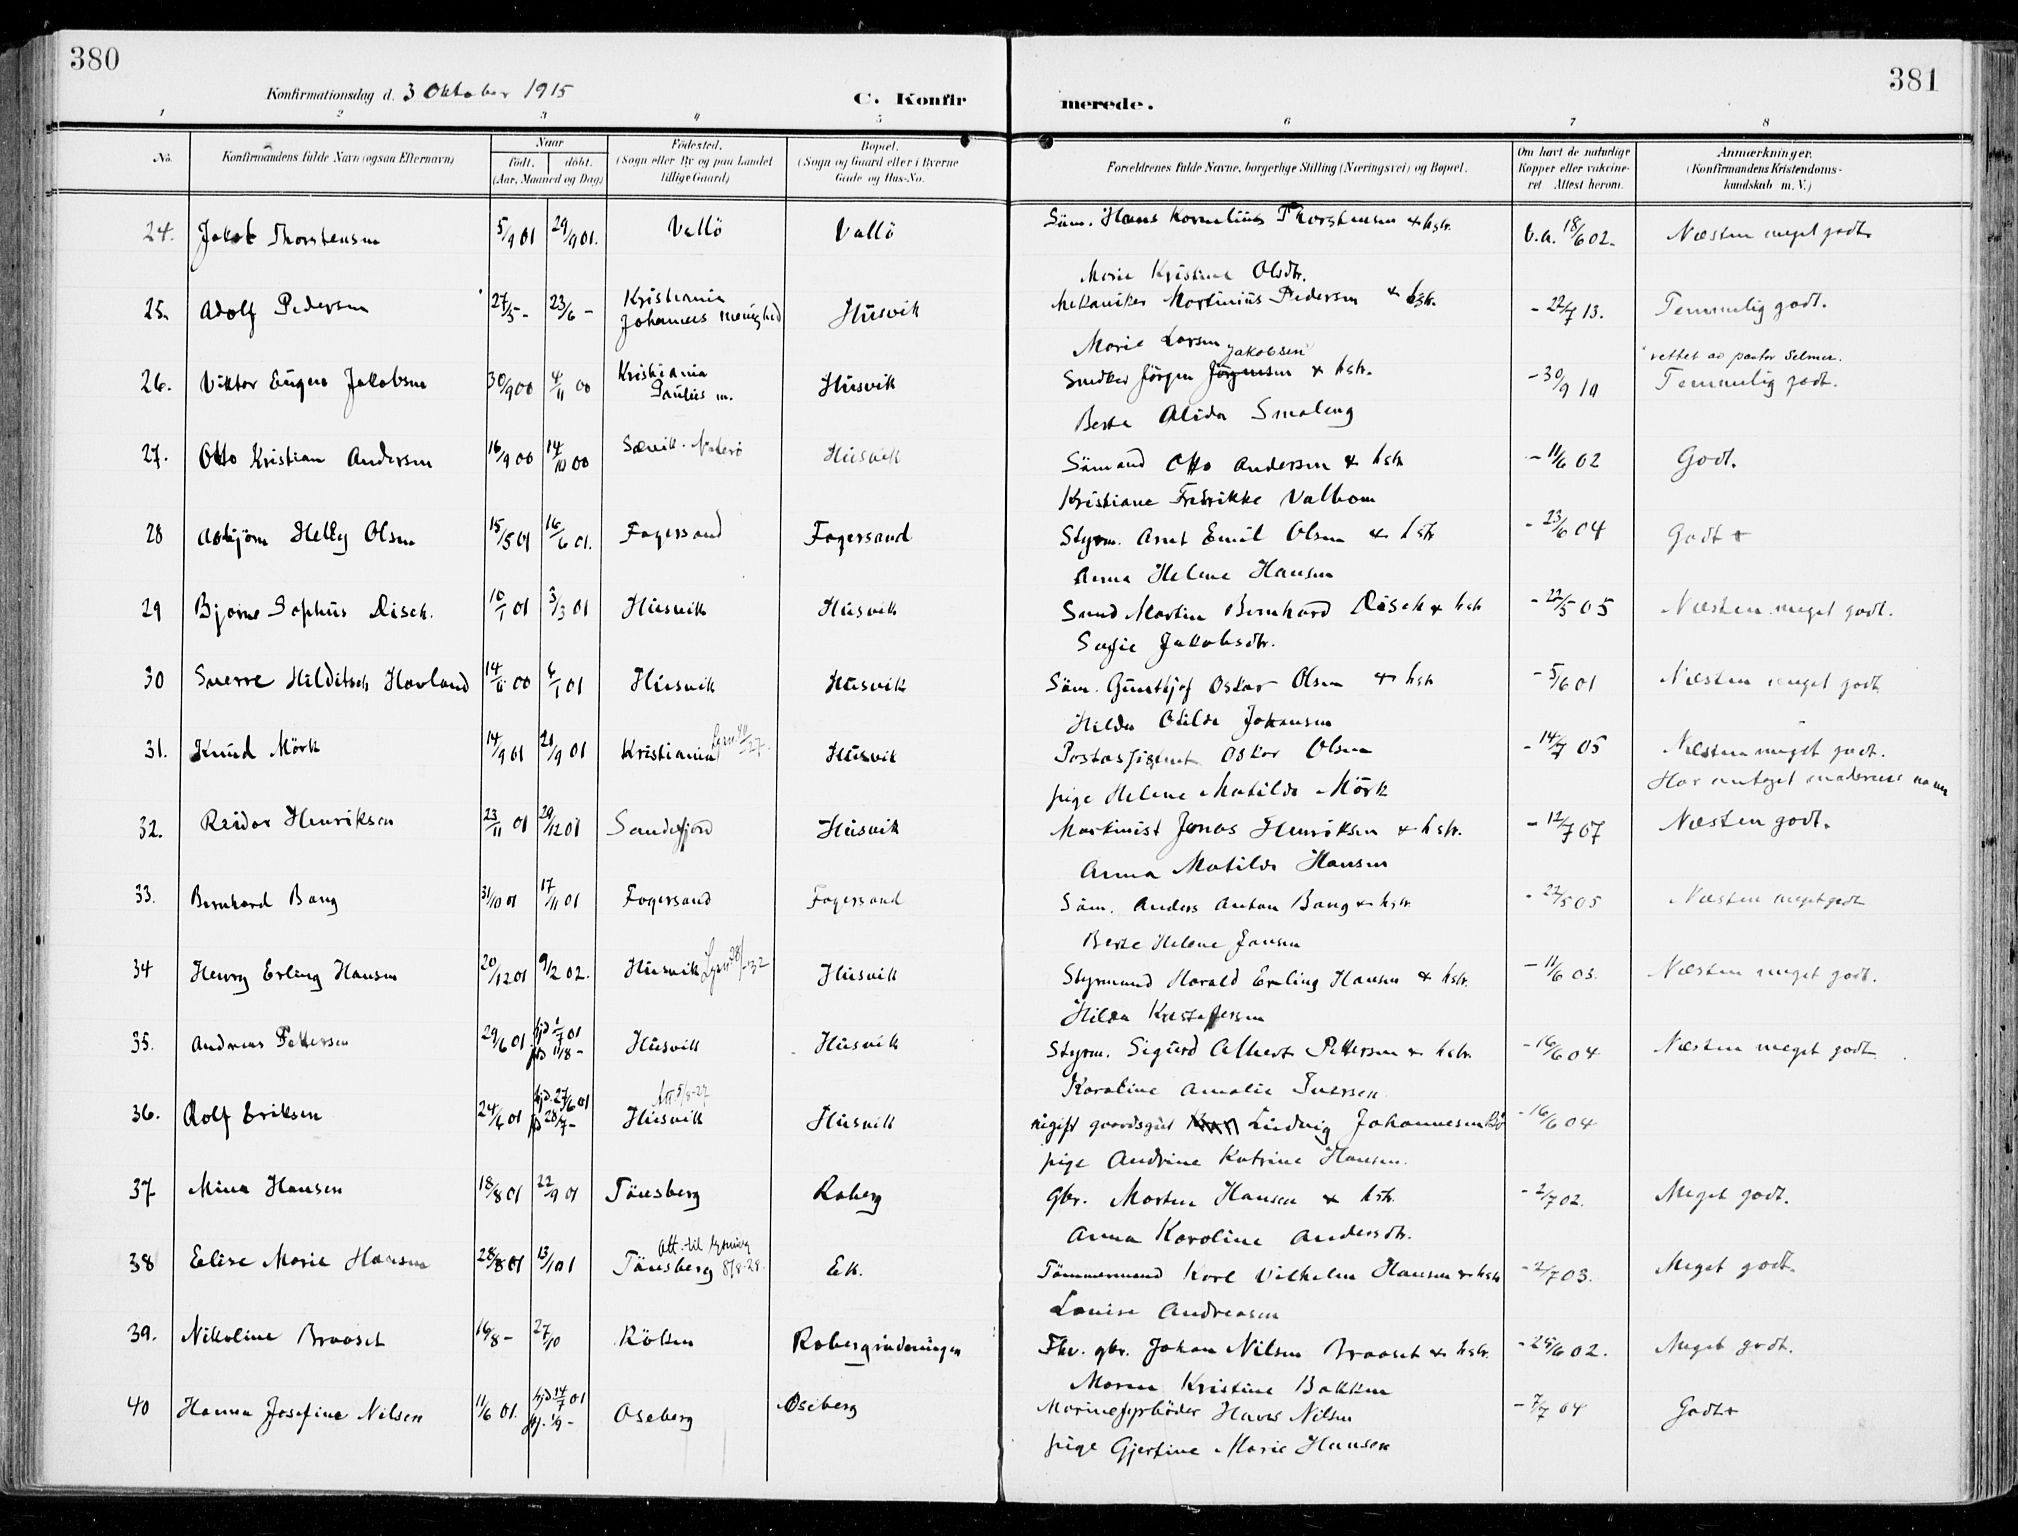 380
381
Konfirmationsdag d. 3 Oktober 1915
C. Konfirmerede.
1 2 3 4 5 6 7 8
No.
Konfirmandens fulde Navn (ogsaa Efternavn)
Naar
født. døbt.
(Aar, Maaned og Dag)
Fødested.
(Sogn eller By og paa Landet
tillige Gaard)
Bopæl.
(Sogn og Gaard eller i Byerne
Gade og Hus-No.
Forældrenes fulde Navne, borgerlige Stilling (Næringsvei) og Bopæl.
Om havt de naturlige
Kopper eller vakcine-
ret Attest herom.
Anmærkninger.
(Konfirmandens Kristendoms-
kundskab m. V.)
24. Jakob Thorstensen 5/9 01 29/9 01. Vallö Vallö Söm. Hans Kornelius Thorstensen & hstr. v.a. 18/6 02. Næsten meget godt.
Marie Kristine Olsdtr.
25. Adolf Pedersen 27/5 - 23/6 - Kristiania Johannes menighed Husvik Mekaniker Martinius Pedersen & hstr. - 22/7 13. Temmelig godt.
Marie Larsen
Jakobsen rettet av pastor Selmer.
26. Viktor Eugen Jakobsen 30/9 00 4/11 00 Kristiania Paulus m. Husvik Snedker Jörgen Jörgensen & hstr. - 30/9 10 Temmelig godt.
Berte Alida Smaleng
27. Otto Kristian Andersen 16/9 00 14/10 00 Sævik. Nøterö Husvik Sömand Otto Andersen & hstr - 11/6 02 Godt.
Kristiane Fredrikke Valbom
28 Asbjörn Helly Olsen 15/5 01 16/6 01. Fagersand Fagersand Styrm. Arnt Emil Olsen & hstr - 23/6 04 Godt +
Anna Helene Hansen
29 Bjarne Sophus Disch. 10/1 01 3/3 01 Husvik Husvik Smed Martin Bernhard Disch & hstr - 22/5 05 Næsten meget godt.
Sofie Jakobsdtr.
30 Sverre Hilditsch Havland 14/6 00 6/1 01 Husvik Husvik Söm. Gunthjof Oskar Olsen & hstr - 5/6 01 Næsten meget godt
Hilda Otilde Johansen
31. Knud Mörk 14/9 01 21/9 01 Kristiania Husvik Postassistent Oskar Olsen - 14/7 05 Næsten meget godt.
pige Helene Matilde Mörk Har antaget moderens navn
32. Reidar Henriksen 23/11 01 29/12 01 Sandefjord Husvik Maskinist Jonas Henriksen & hstr. - 12/7 07 Næsten godt.
Anna Matilde Hansen
33. Bernhard Bang 31/10 01 17/11 01 Fagersand Fagersand Söm. Anders Anton Bang & hstr - 22/5 05 Næsten meget godt
Berte Helene Jansen
34 Henry Erling Hansen 20/12 01 9/2 02. Husvik Husvik Styrmand Harald Erling Hansen & hstr. - 11/6 03. Næsten meget godt.
Hilda Kristoffersen
35. Andreas Pettersen 29/6 01 hjd 1/7 01 11/8 - Husvik Husvik Styrm. Sigurd Albert Pettersen & hstr. - 16/6 04 Næsten meget godt
Karoline Amalie Iversen
Att 5/8-27
36. Rolf Eriksen 24/6 01 hjd. 27/6 01 28/7 - Husvik Husvik ugift gaardsgut Ludvig Johannesen Bö - 16/6 04
pige Andrine Katrine Hansen.
37 Mina Hansen 18/8 01 22/9 01 Tönsberg Raberg Gbr. Morten Hansen & hstr. - 2/7 02. Meget godt.
Anna Karoline Andersdtr.
Att. til lysning
38 Elise Marie Hansen 28/8 01 13/10 1 Tönsberg 8/8-28. Ek. Tömmermand Karl Vilhelm Hansen & hstr - 2/7 03. Meget godt.
Louise Andreasen
39. Nikoline Braaset 16/8 - 27/10 Röken Rabergrudningen Fhv. gbr. Johan Nilsen Braaset & hstr. - 25/6 02. Meget godt.
Maren Kristine Bakken
40 Hanna Josefine Nilsen 11/6 01. hjd. 14/7 01 1/9 - Oseberg Oseberg Marinefyrböder Hans Nilsen - 7/7 04 Godt +
pige Gjertine Marie Hansen